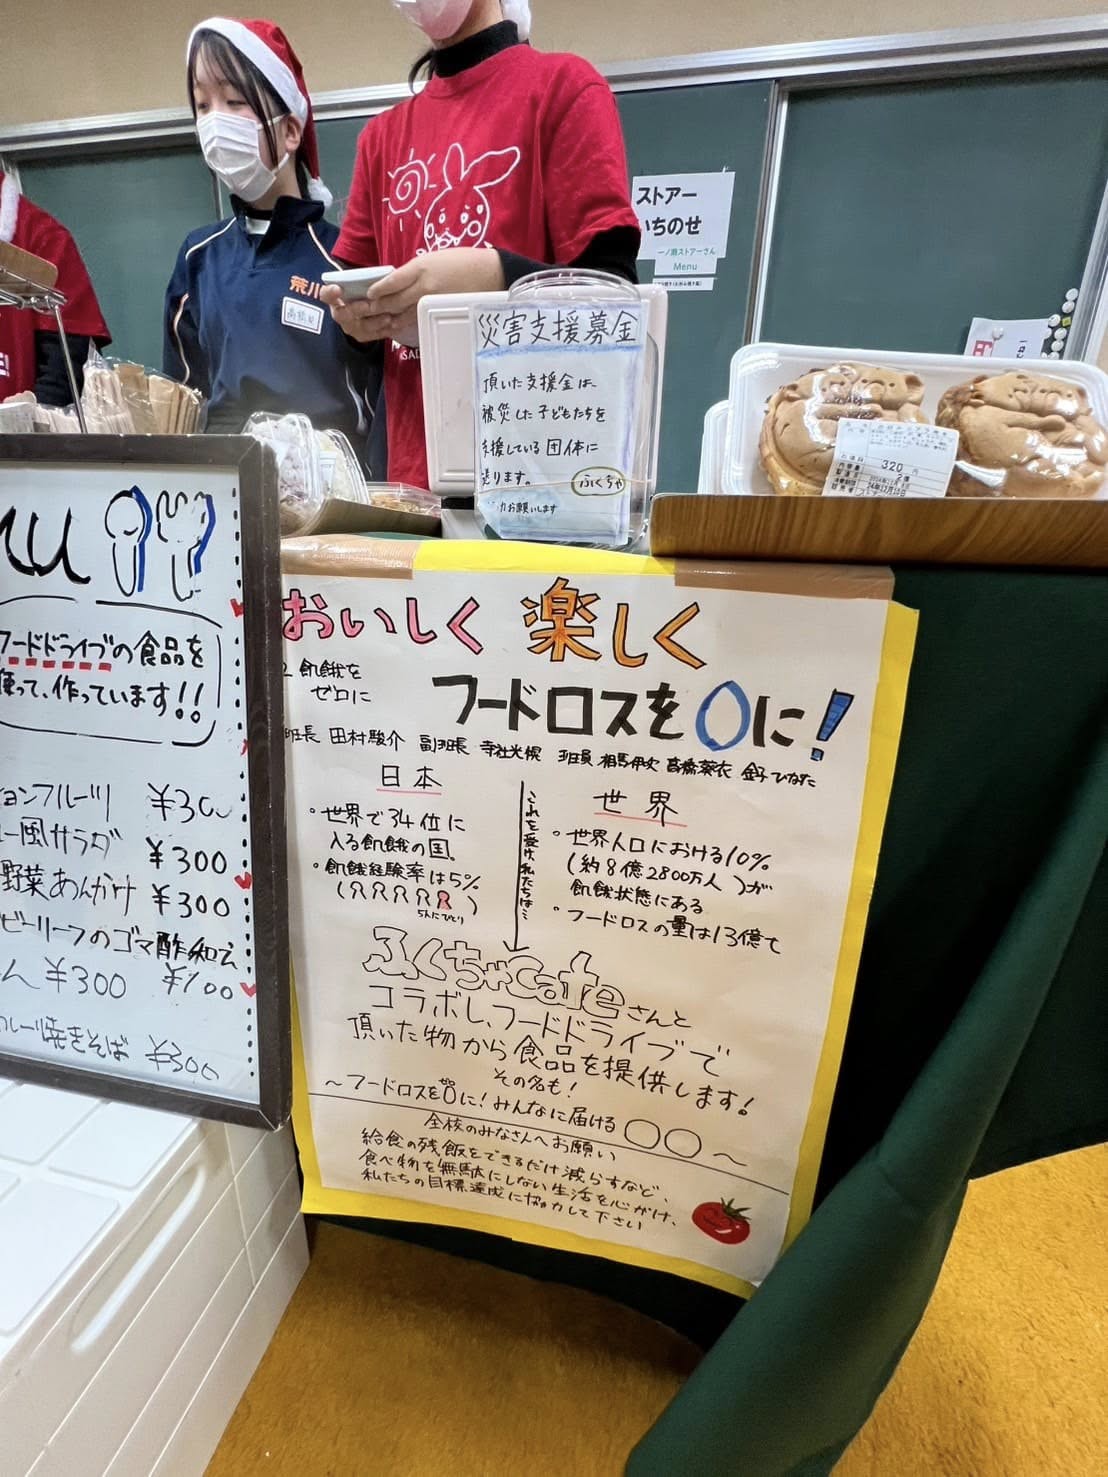 ストアー
いちのせ
一ノ瀬ストアーさん
Menu
荒川
災害支援募金
頂いた支援金は、
被災した子どもたちを
支援している団体に
送ります。
ふくちゃ
お願いします
320
円
フードドライブの食品を
使って、作っています!!
ョンフルーツ ¥300
ー風サラダ ¥300
野菜あんかけ ¥300
ビーリーフのゴマ酢和え
¥300 ¥100
焼きそば ¥300
おいしく 楽しく
2 飢餓を
ゼロに
フードロスを0に!
班長 田村駿介 副班長 班員
日本
・世界で34位に
入る飢餓の国。
・飢餓経験率は5%
5人にひとり
これを受け、私たちは…
世界
・世界人口における10%
(約8億2800万人)が
飢餓状態にある
・フードロスの量は13億t
ふくちゃCafeさんと
コラボし、フードドライブで
頂いた物から食品を提供します!
その名も!
〜フードロスを0に!みんなに届ける○○〜
全校のみなさんへお願い
給食の残飯をできるだけ減らすなど、
食べ物を無駄にしない生活を心がけ、
私たちの目標達成に協力して下さい